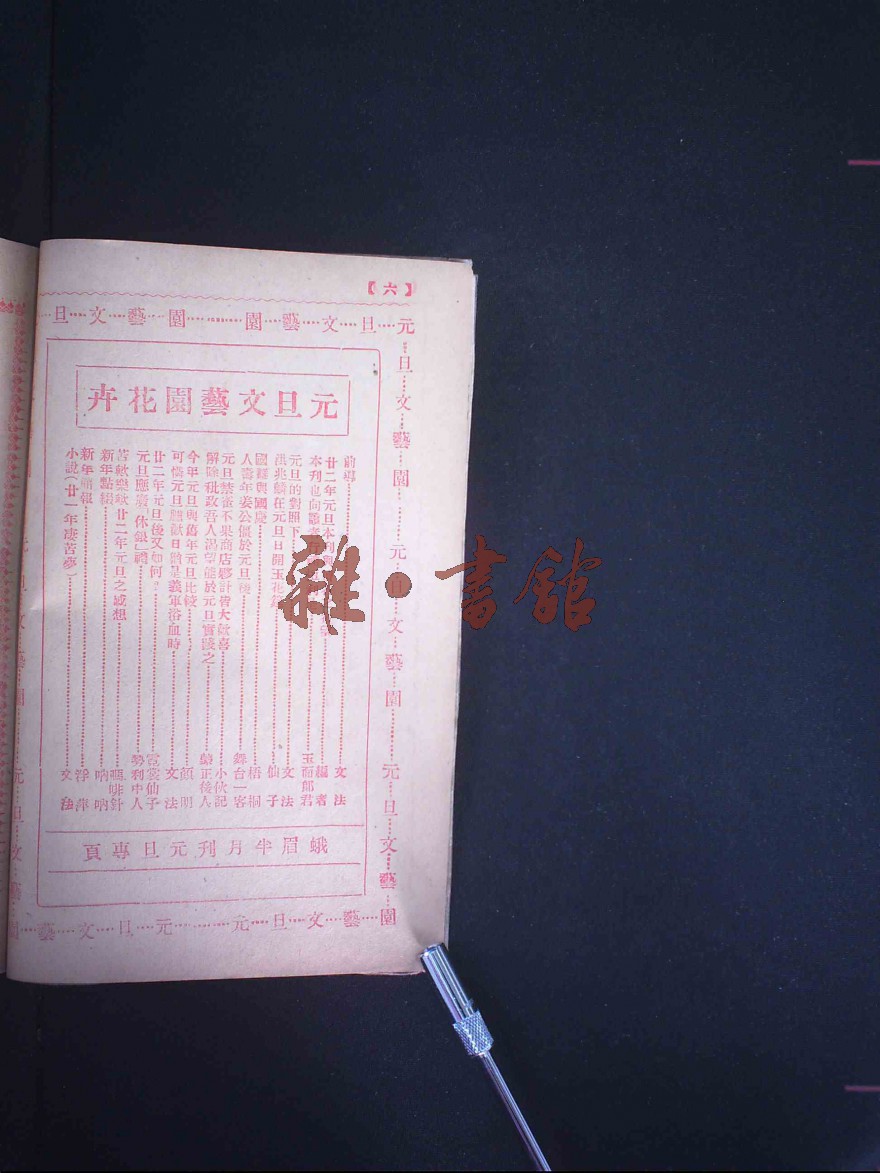 【六】
元旦文藝園……園藝文旦
元旦文藝園花卉
前導……文法
廿二年元旦本刊……編者
本刊也向……玉面郎君
元旦的對照下……文法
洪兆麟在元旦日開玉花……仙子
國難與國慶……梧桐
人壽年姜公價於元旦……舞台一客
元旦禁宰不果商店夥計皆大歡喜……小伙記
解除稅政吾人渴望能於元旦實踐之……正後人
今年元旦與舊年元旦比較……顧明
可憐元旦歡日時是義軍浴血時……文法
廿二年元旦後又如何。……霓裳仙子
元旦應廢「休銀」禮……勢利中人
苦歟樂歟廿二年元旦之感想……啡針
新年點綴……吶吶
新年……浮萍
小說(廿一年凄苦夢)……文
蛾眉半月刊元旦專頁
元旦文藝園……元旦文藝園……元旦文藝園
園藝文旦元……元旦文藝